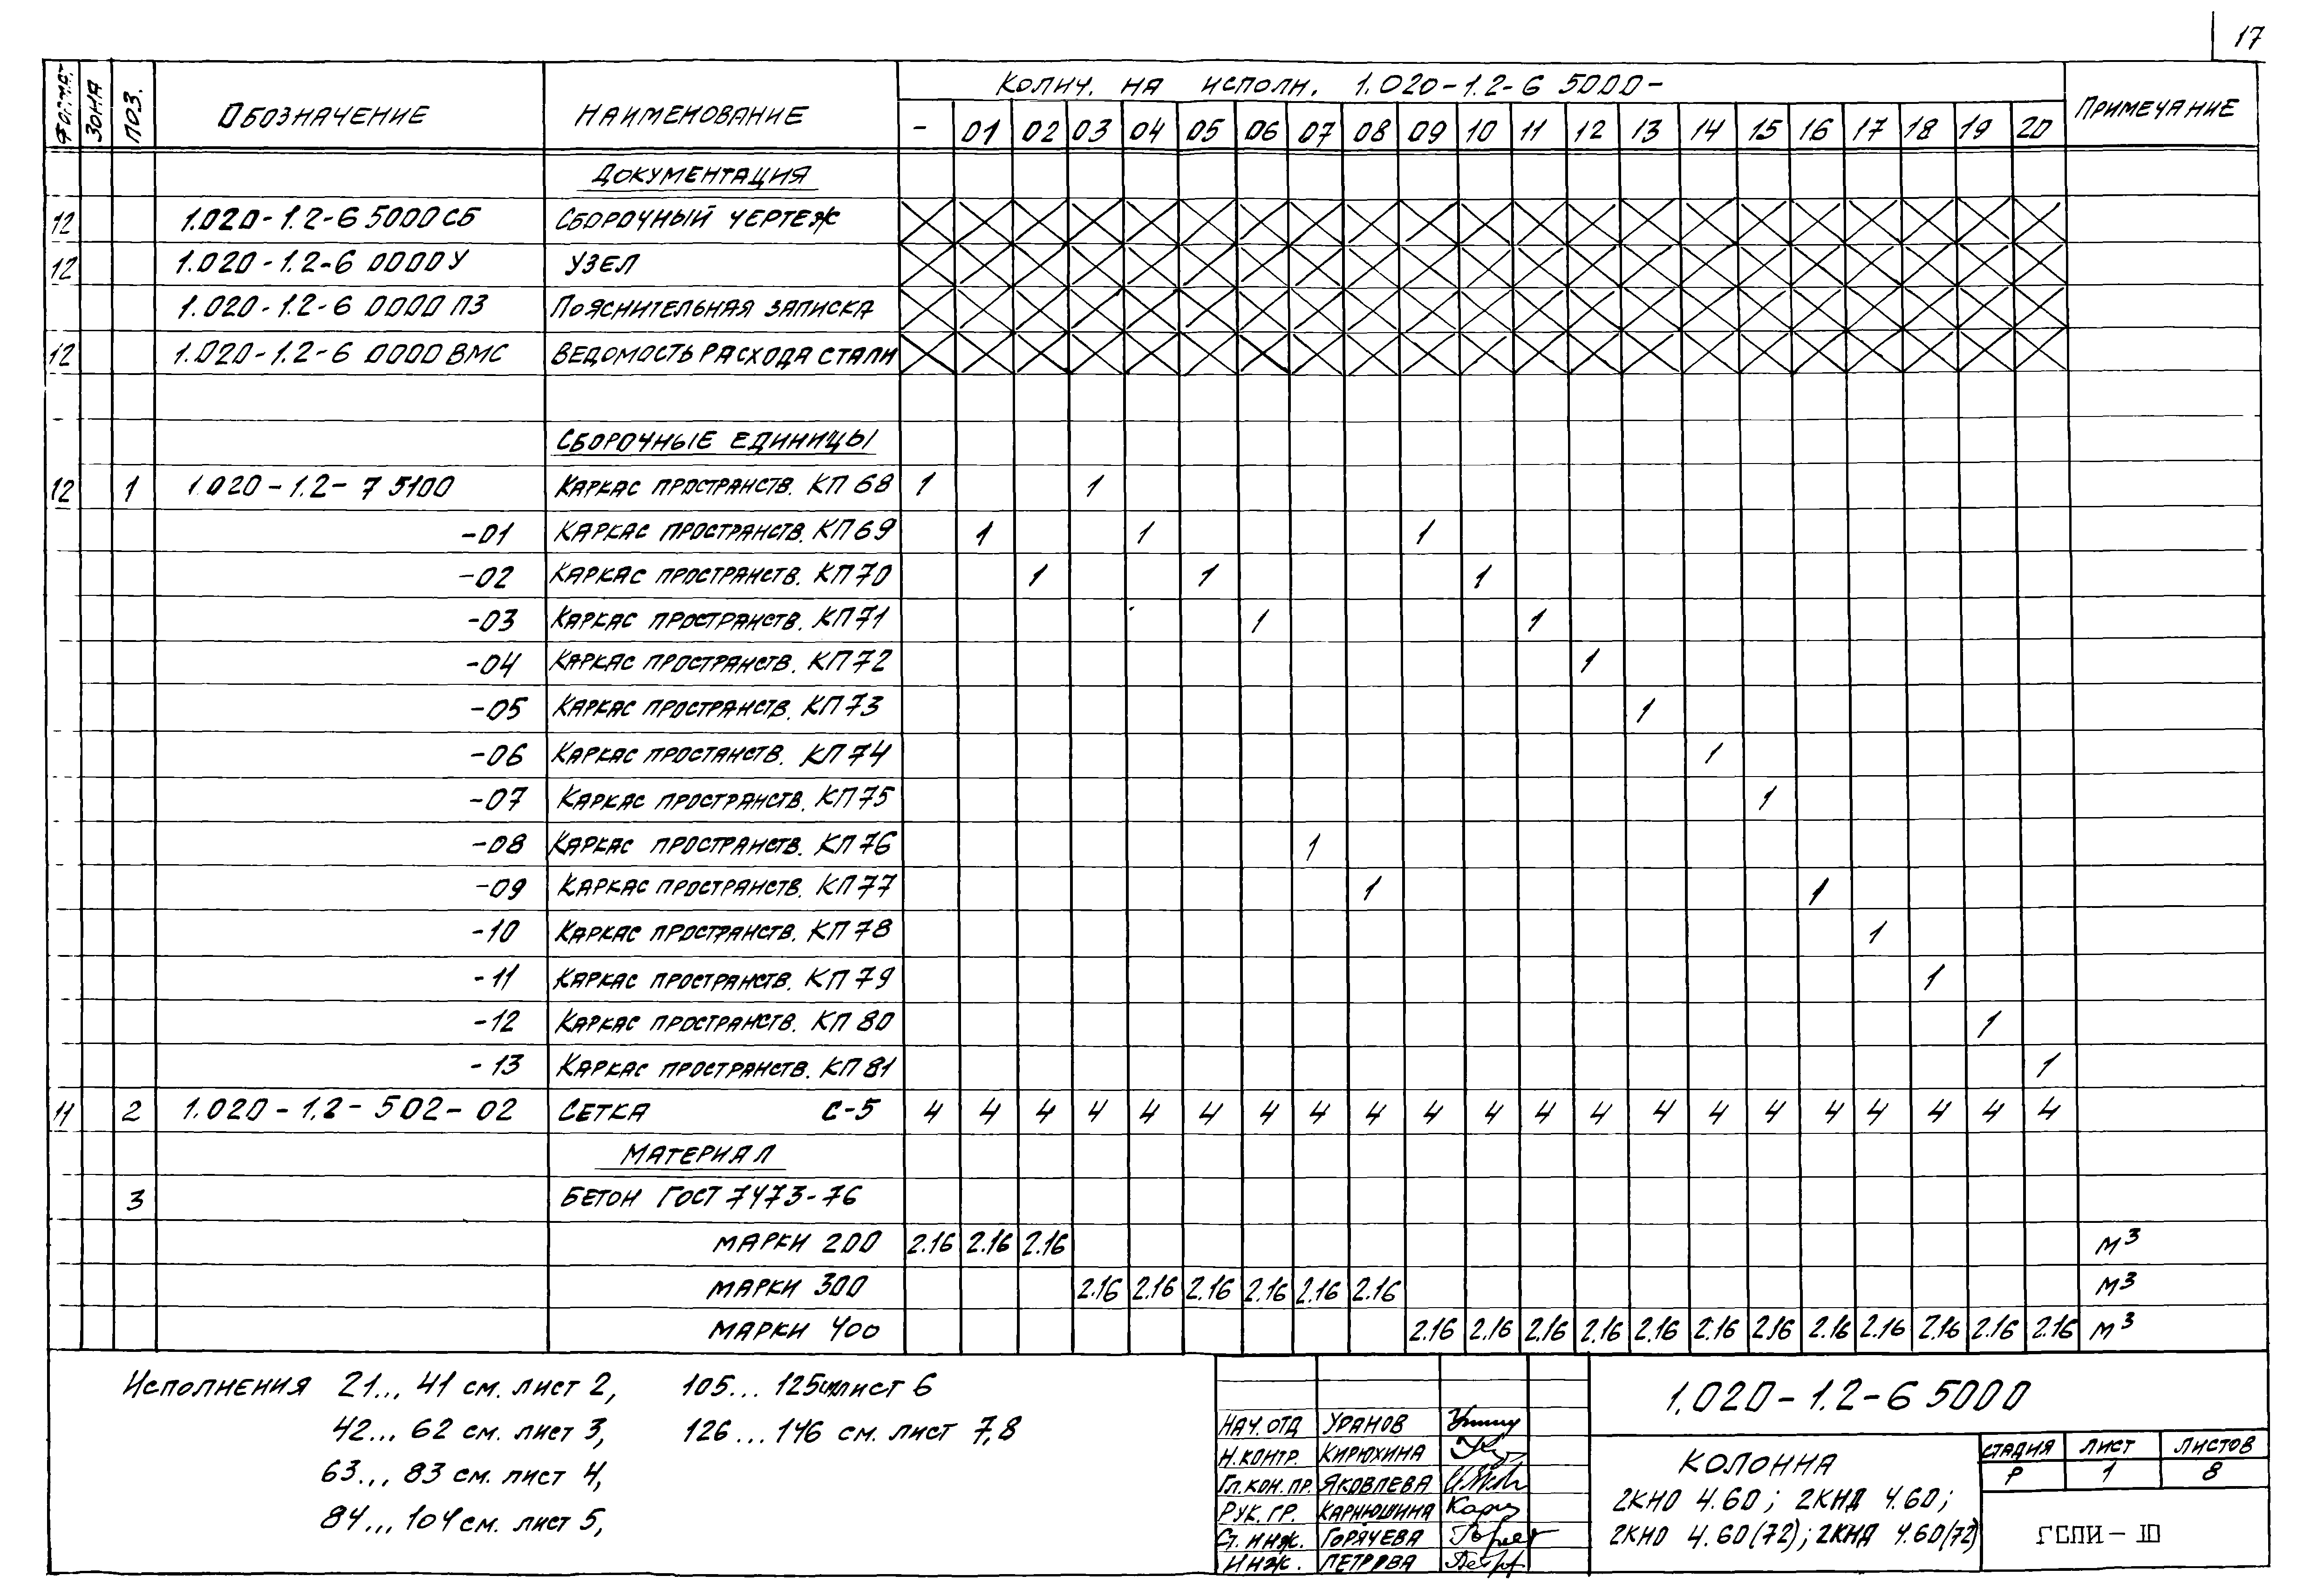 17
Формат Зона Поз. Обозначение Наименование Колич. на исполн. 1.020-1.2-6 5000- Примечание
- 01 02 03 04 05 06 07 08 09 10 11 12 13 14 15 16 17 18 19 20
Документация
12 1.020-1.2-6 5000СБ Сборочный чертеж
12 1.020-1.2-6 0000У Узел
1.020-1.2-6 0000ПЗ Пояснительная записка
12 1.020-1.2-6 0000ВМС Ведомость расхода стали
Сборочные единицы
12 1 1.020-1.2-7 5100 Каркас пространств. КП 68 1 1
-01 Каркас пространств. КП 69 1 1 1
-02 Каркас пространств. КП 70 1 1 1
-03 Каркас пространств. КП 71 1 1
-04 Каркас пространств. КП 72 1
-05 Каркас пространств. КП 73 1
-06 Каркас простанств. КП 74 1
-07 Каркас пространств. КП 75 1
-08 Каркас пространств. КП 76 1
-09 Каркас пространств. КП 77 1 1
-10 Каркас пространств. КП 78 1
-11 Каркас пространств. КП 79 1
-12 Каркас пространств. КП 80 1
-13 Каркас пространств. КП 81 1
11 2 1.020-1.2-502-02 Сетка С-5 4 4 4 4 4 4 4 4 4 4 4 4 4 4 4 4 4 4 4 4 4
Материал
3 Бетон ГОСТ 7473-76
марки 200 2.16 2.16 2.16 м³
марки 300 2.16 2.16 2.16 2.16 2.16 2.16 м³
марки 400 2.16 2.16 2.16 2.16 2.16 2.16 2.16 2.16 2.16 2.16 2.16 2.16 м³
Исполнения 21... 41 см. лист 2, 105... 125см лист 6
42... 62 см. лист 3, 126... 146 см. лист 7,8
63... 83 см. лист 4,
84... 104 см. лист 5,
Нач. отд Уранов
Н. контр. Кирюхина
Гл. кон. пр. Яковлева
Рук. гр. Карнюшина
Ст. инж. Горячева
Инж. Петрова
1.020-1.2-6 5000
Колонна
2КНО 4.60; 2КНД 4.60;
2КНО 4.60(72); 2КНД 4.60(72)
Стадия Лист Листов
Р 1 8
ГСПИ-10